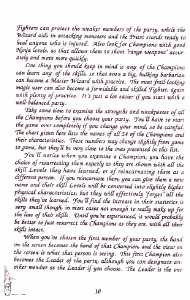 Fighters can protect the weaker members of the party, while the
Wizard aids in attacking monsters and the Priest stands ready to
heal anyone who is injured. Also look for Champions with good
Ninja levels so that allows them to shoot 'range weapons' accur-
ately and move more quickly.
One thing you should keep in mind is any of the Champions
can learn any of the skills, so that even a big, hulking barbarian
can become a Master Wizard with practice. The most frail-looking
magic user can also become a formidable and skilled Fighter, again
with plenty of practice. It's just a lot easier if you start with a
well-balanced party.
Take some time to examine the strengths and weaknesses of all
the Champions before you choose your party. You'll have to start
the game over completely if you change your mind, so be careful.
The chart given here lists the names of all 24 of the Champions and
their characteristics. These numbers may change slightly from game
to game, but they'll be very close to the ones presented in this list.
You'll notice when you examine a Champion, you have the
choice of resurrecting them exactly as they are shown with all the
skill Levels they have learned, or of reincarnating them as a
different person. If you reincarnate them you can give them a new
name and their skill Levels will be converted into slightly higher
physical characteristics, but they will effectively 'forget' all the
skills they've learned. You'll find the increase in their statistics is
very small though, in most cases not enough to really make up for
the loss of their skills. Until you're experienced, it would probably
be better to just resurrect the Champions as they are, with all their
skills intact.
When you've chosen the first member of your party, the hand
on the screen becomes the hand of that Champion, and the view on
the screen is what that person is seeing. This first Champion also
becomes the Leader of the party, although you can designate an-
other member as the Leader if you choose. The Leader is the one
10